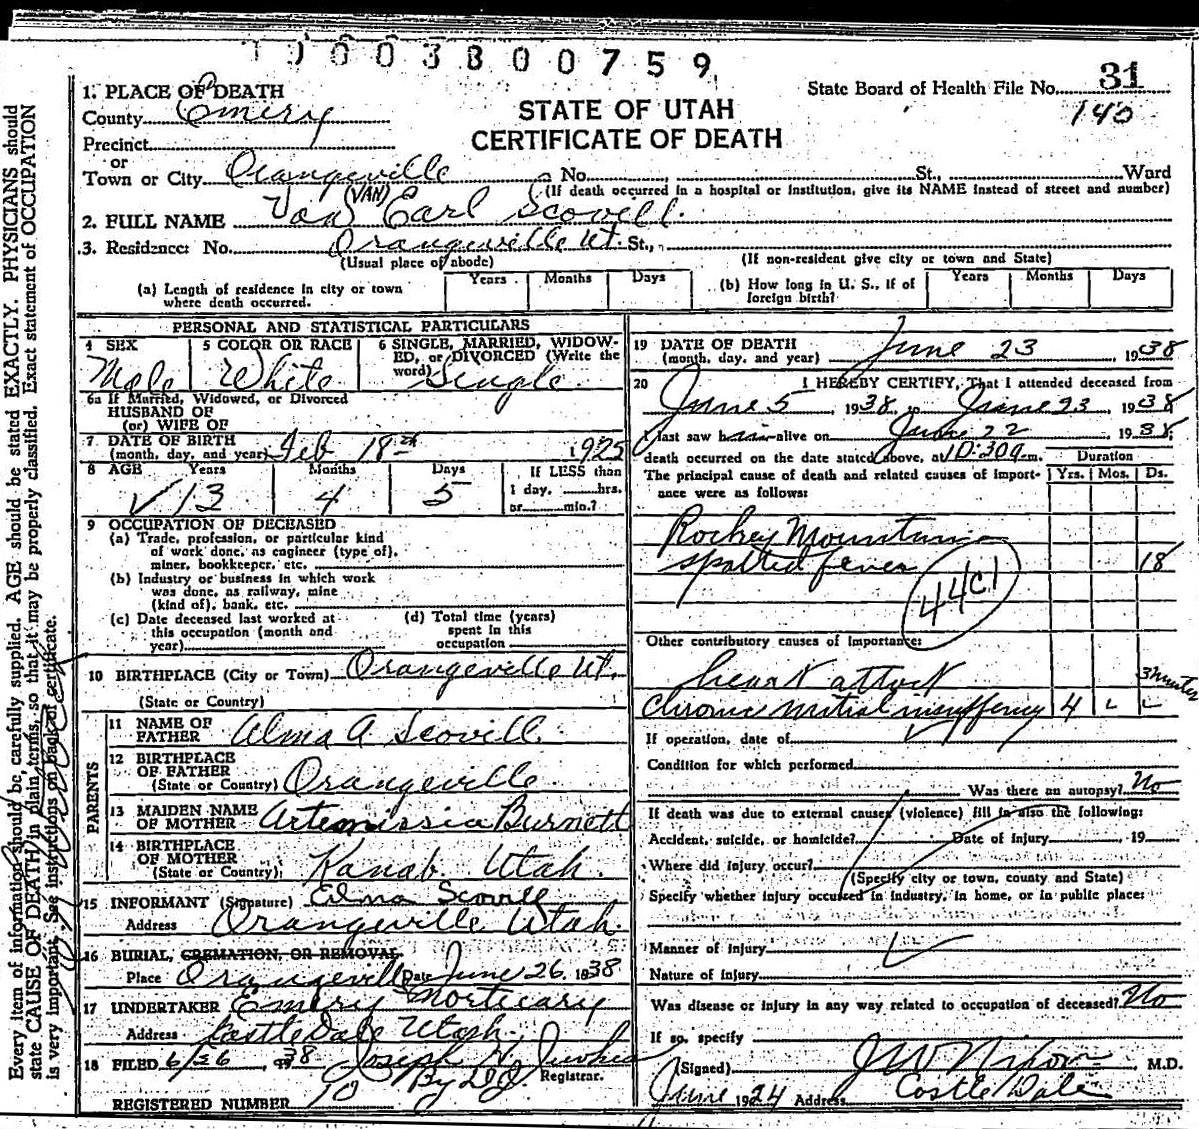 1003800759
1. PLACE OF DEATH
State Board of Health File No. 31
County Emery
STATE OF UTAH
140
Precinct
CERTIFICATE OF DEATH
or
Town or City Orangeville No. St., Ward
(If death occurred in a hospital or institution, give its NAME instead of street and number)
(VAN)
2. FULL NAME Van Earl Scovill.
3. Residence: No. Orangeville Ut. St.,
(Usual place of abode) (If non-resident give city or town and State)
(a) Length of residence in city or town where death occurred. Years Months Days
(b) How long in U. S., if of foreign birth? Years Months Days
PERSONAL AND STATISTICAL PARTICULARS
4 SEX 5 COLOR OR RACE 6 SINGLE, MARRIED, WIDOW-
ED, or DIVORCED (Write the
word)
Male White Single
6a If Married, Widowed, or Divorced
HUSBAND OF
(or) WIFE OF
7 DATE OF BIRTH
(month, day, and year) Feb 18th 1925
8 AGE Years Months Days If LESS than
1 day, hrs.
or min.?
13 4 5
9 OCCUPATION OF DECEASED
(a) Trade, profession, or particular kind
of work done, as engineer (type of),
miner, bookkeeper, etc.
(b) Industry or business in which work
was done, as railway, mine
(kind of), bank, etc.
(c) Date deceased last worked at
this occupation (month and
year)
(d) Total time (years)
spent in this
occupation
10 BIRTHPLACE (City or Town) Orangeville Ut.
(State or Country)
PARENTS
11 NAME OF
FATHER Alma A Scovill.
12 BIRTHPLACE
OF FATHER
(State or Country) Orangeville
13 MAIDEN NAME
OF MOTHER Artemissia Burnett
14 BIRTHPLACE
OF MOTHER
(State or Country) Kanab Utah
15 INFORMANT (Signature) Elma Scovill
Address Orangeville Utah.
16 BURIAL, CREMATION, OR REMOVAL.
Place Orangeville Date June 26. 1938
17 UNDERTAKER Emery Mortuary
Address Castle Dale Utah.
18 FILED 6/26, 38 Joseph H.
By Registrar.
REGISTERED NUMBER 90
19 DATE OF DEATH
(month, day, and year) June 23, 1938
20 I HEREBY CERTIFY, That I attended deceased from
June 5, 1938 to June 23, 1938
I last saw him alive on June 22 1938;
death occurred on the date stated above, at 10:30a m. Duration
The principal cause of death and related causes of import-
ance were as follows: Yrs. Mos. Ds.
Rockey Mountain
spotted fever 18
44c1
Other contributory causes of importance:
heart attack
Chronic mitral 4
If operation, date of
Condition for which performed
Was there an autopsy? No
If death was due to external causes (violence) fill in also the following:
Accident, suicide, or homicide? Date of injury, 19
Where did injury occur?
(Specify city or town, county and State)
Specify whether injury occurred in industry, in home, or in public place:
Manner of injury
Nature of injury
Was disease or injury in any way related to occupation of deceased? No
If so, specify
(Signed) J W Nixon, M.D.
June 24 Address Castle Dale
Every item of information should be carefully supplied. AGE should be stated EXACTLY. PHYSICIANS should
state CAUSE OF DEATH in plain terms, so that it may be properly classified. Exact statement of OCCUPATION
is very important. See instructions on back of certificate.